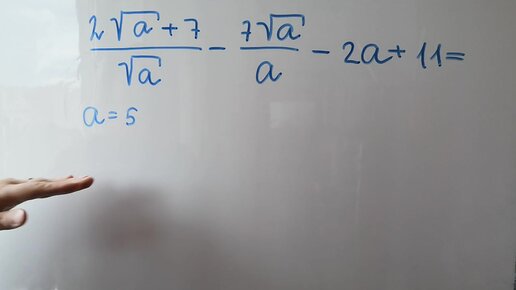 (2√a + 7)/√a − 7√a/a − 2a + 11 =
a = 5